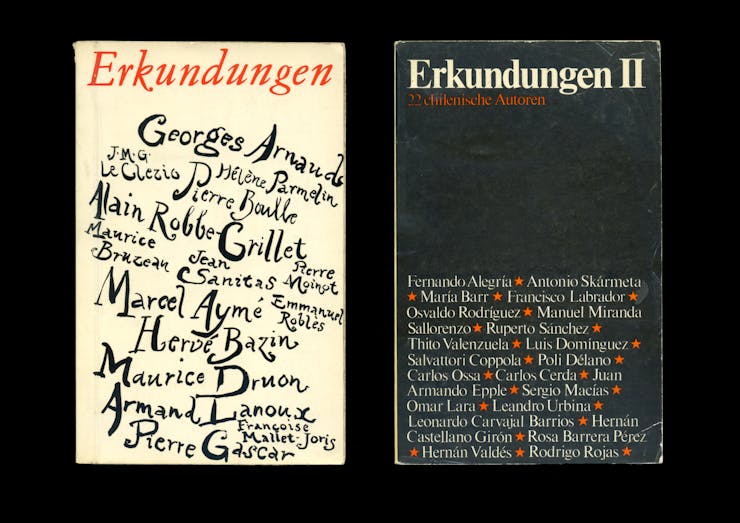 Erkundungen
Georges Arnaud
J.M.G.
Le Clezio
Hélène Parmelin
Pierre Boulle
Alain Robbe-Grillet
Maurice
Bruzeau
Jean
Sanitas
Pierre
Moinot
Marcel Aymé
Emmanuel
Robles
Hervé Bazin
Maurice Druon
Armand Lanoux
Françoise
Mallet-Joris
Pierre Gascar
Erkundungen II
22 chilenische Autoren
Fernando Alegría ★ Antonio Skármeta
★ María Barr ★ Francisco Labrador ★
Osvaldo Rodríguez ★ Manuel Miranda
Sallorenzo ★ Ruperto Sánchez ★
Thito Valenzuela ★ Luis Domínguez ★
Salvattori Coppola ★ Poli Délano ★
Carlos Ossa ★ Carlos Cerda ★ Juan
Armando Epple ★ Sergio Macías ★
Omar Lara ★ Leandro Urbina ★
Leonardo Carvajal Barrios ★ Hernán
Castellano Girón ★ Rosa Barrera Pérez
★ Hernán Valdés ★ Rodrigo Rojas ★